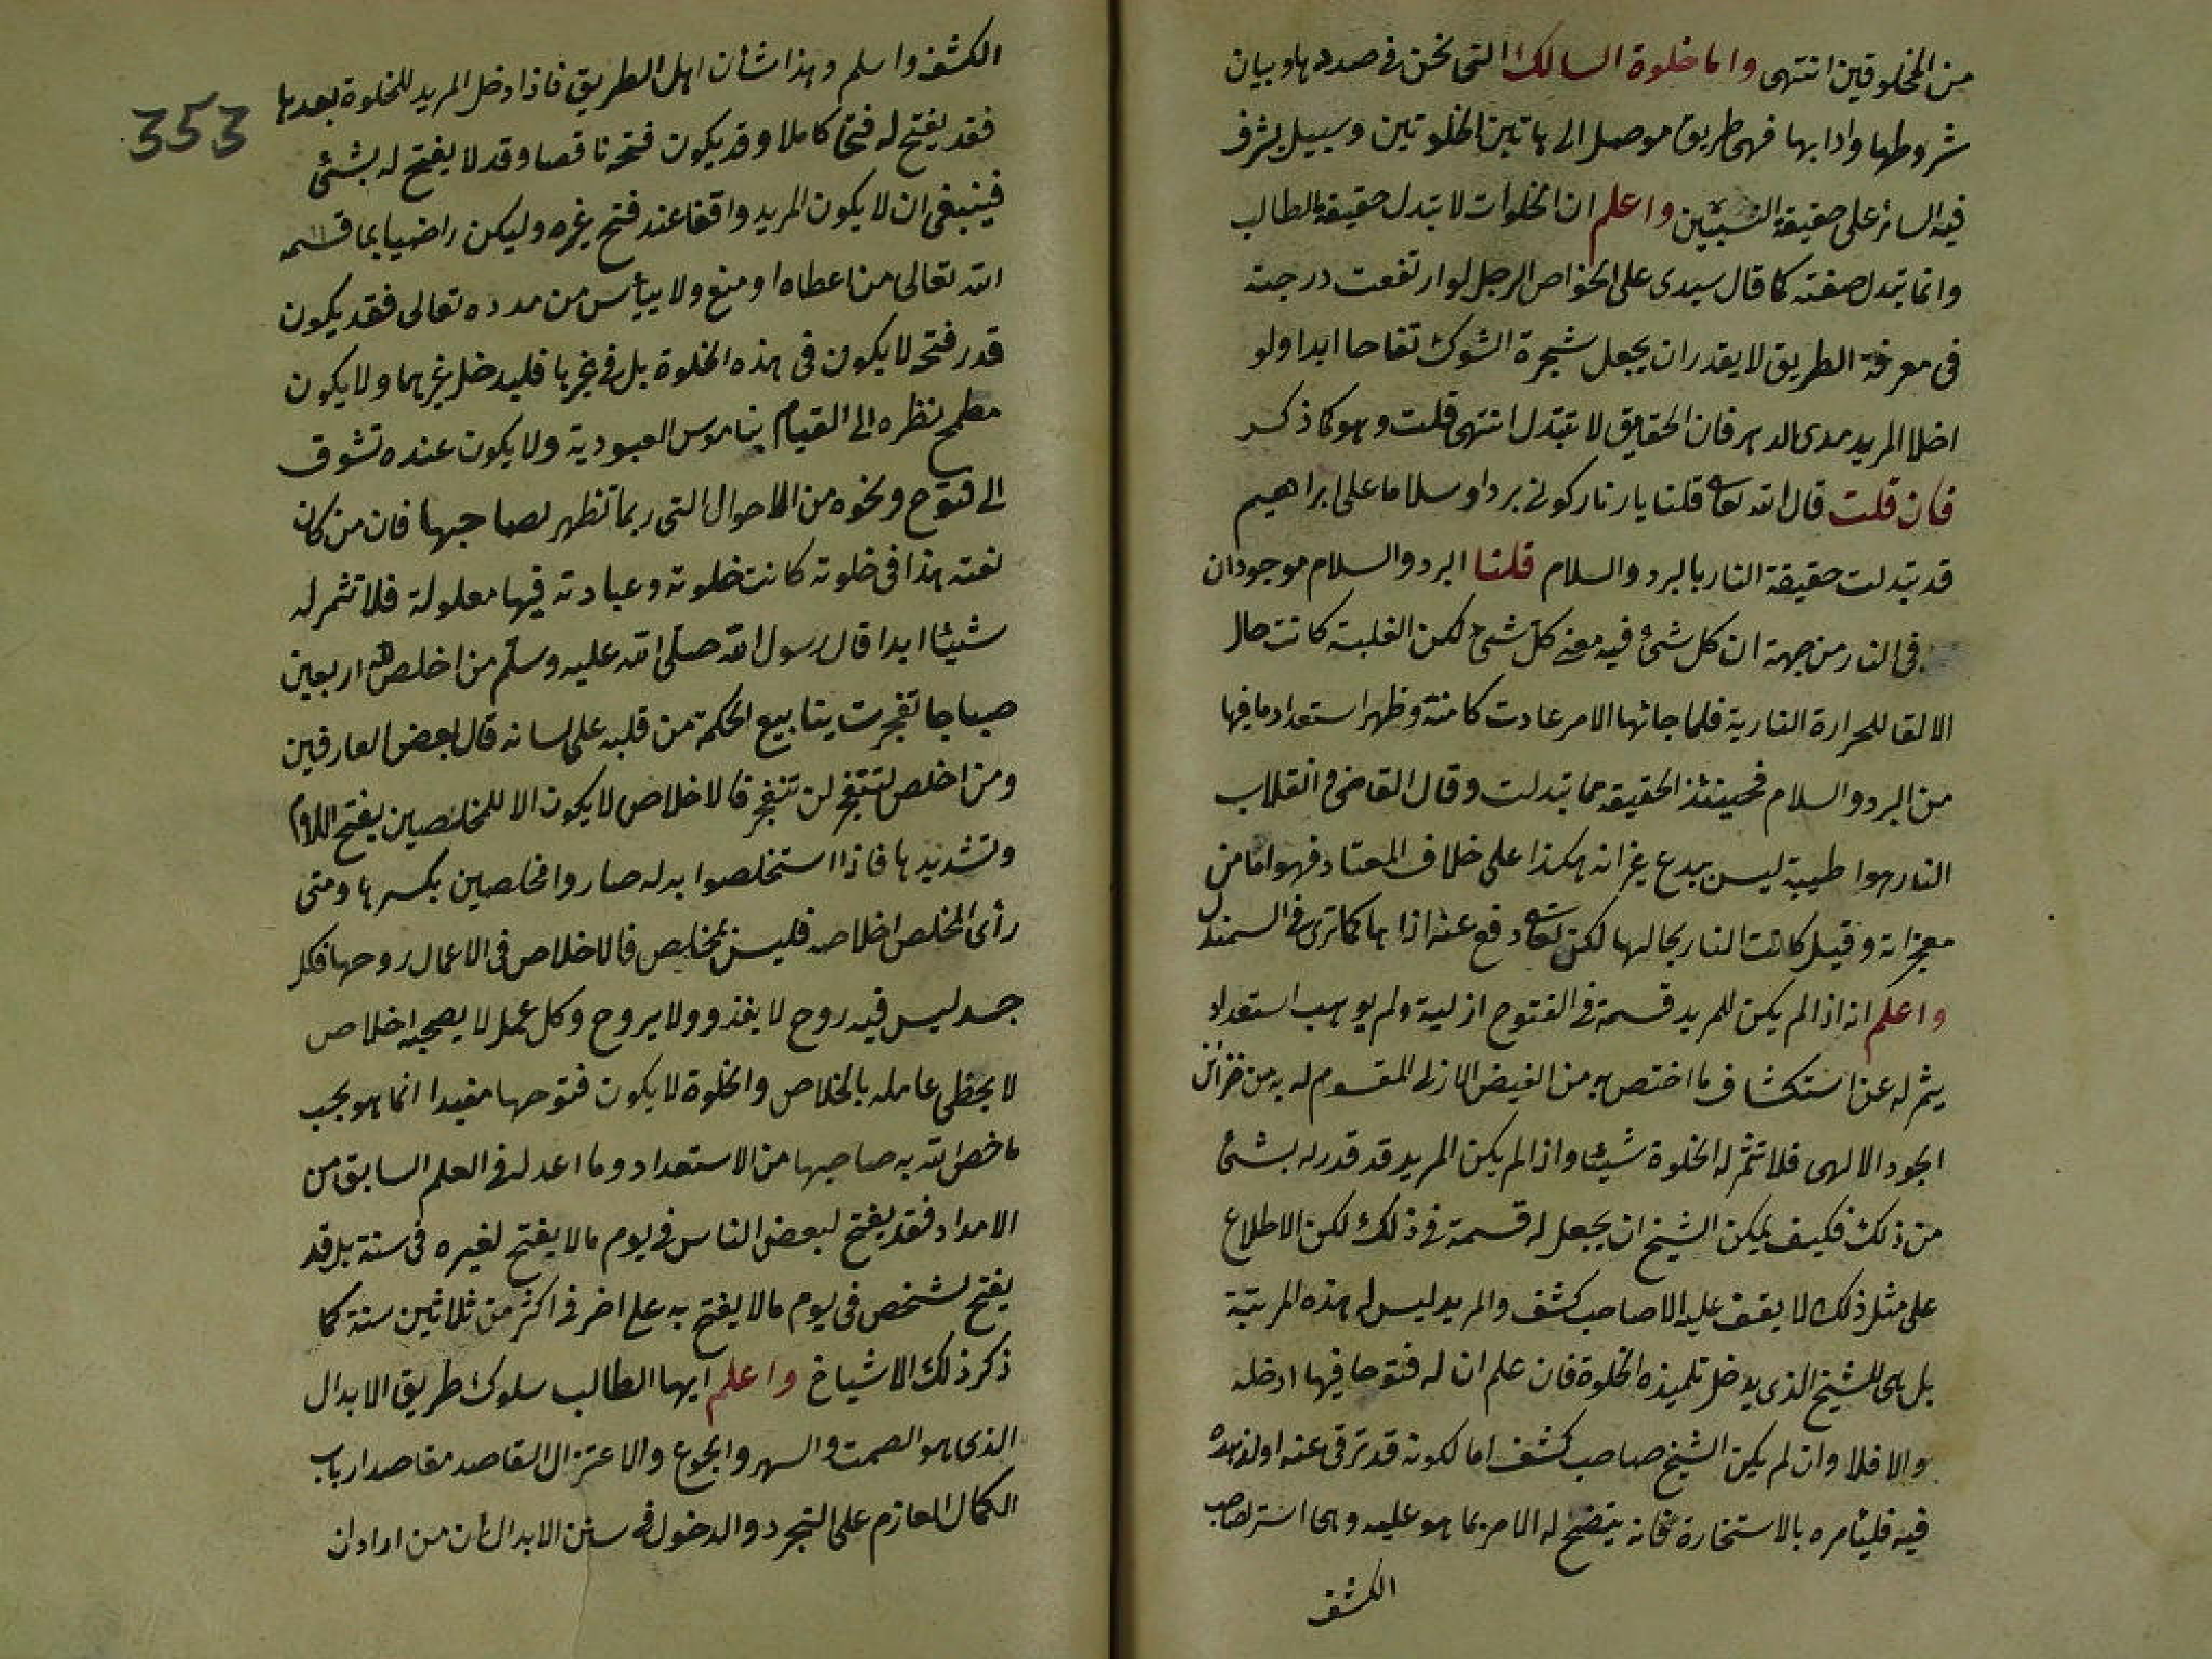 من المخلوقين انتهى واما خلوة السالك التى نحن فى صددها وبيان
شروطها وادابها فهى طريق موصل الى هاتين الخلوتين وسبيل يشرف
فيه السائر على حقيقة النسبتين واعلم ان الخلوات لا تبدل حقيقة الطالب
وانما تبدل صفته كما قال سيدى على الخواص الرجل لو ارتفعت درجته
فى معرفة الطريق لا يقدر ان يجعل شجرة الشوك تفاحا ابدا ولو
اخلا المريد مدى الدهر فان الحقايق لا تتبدل انتهى قلت وهو كما ذكر
فان قلت قال الله تعالى قلنا يا نار كونى بردا وسلاما على ابراهيم
قد تبدلت حقيقة النار بالبرد والسلام قلنا البرد والسلام موجودان
فى النار من جهة ان كل شئ فيه معنى كل شئ لكن الغلبة كانت حال
الالقا للحرارة النارية فلما جائها الامر عادت كامنة وظهر استعداد ما فيها
من البرد والسلام فحينئذ الحقيقة مما تبدلت وقال القاضى وانقلاب
النار هوا طيبة ليس ببدع غير انه هكذا على خلاف المعتاد فهو اما من
معجزاته وقيل كانت النار بحالها لكن تعالى دفع عنه اذاها كما ترى فى السمندل
واعلم انه اذا لم يكن للمريد قسمة فى الفتوح ازلية ولم يوهب استعداد
يثمر له عن استكشاف ما اختص به من الفيض الازلى المقسوم له به من خزائن
الجود الالهى فلا تثمر له الخلوة شيئا واذا لم يكن المريد قد قدر له بشئ
من ذلك فكيف يمكن الشيخ ان يجعل له قسمة فى ذلك لكن الاطلاع
على مثل ذلك لا يقف عليه الا صاحب كشف والمريد ليس له هذه المرتبة
بل هى للشيخ الذى يدخل تلميذه الخلوة فان علم ان له فتوحا فيها ادخله
والا فلا وان لم يكن الشيخ صاحب كشف اما لكونه قد ترقى عنه او لزهده
فيه فليأمره بالاستخارة فانه يتضح له الامر بما هو عليه وهى استر لصاحب
الكشف
353
الكشف واسلم وهذا شأن اهل الطريق فاذا دخل المريد للخلوة بعدها
فقد يفتح له فتحا كاملا وقد يكون فتحه ناقصا وقد لا يفتح له بشئ
فينبغى ان لا يكون المريد واقفا عند فتح غيره وليكن راضيا بما قسمه
الله تعالى من اعطاه او منع ولا ييأس من مدده تعالى فقد يكون
قدر فتحه لا يكون فى هذه الخلوة بل فى غيرها فليدخل غيرها ولا يكون
مطمح نظره الى القيام بناموس العبودية ولا يكون عنده تشوف
الى فتوح ونحوه من الاحوال التى ربما تظهر لصاحبها فان من كان
نعته هذا فى خلوته كانت خلوته وعبادته فيها معلولة فلا تثمر له
شيئا ابدا قال رسول الله صلى الله عليه وسلم من اخلص لله اربعين
صباحا تفجرت ينابيع الحكمة من قلبه على لسانه قال بعض العارفين
ومن اخلص لتتفجر لن تتفجر فالاخلاص لا يكون الا للمخلصين بفتح اللام
وتشديدها فاذا استخلصوا بدله صاروا مخلصين بكسرها ومتى
رأى المخلص اخلاصه فليس بمخلص فالاخلاص فى الاعمال روحها فكل
جسد ليس فيه روح لا يغذو ولا يروح وكل عمل لا يصحبه اخلاص
لا يحظى عامله بالخلاص والخلوة لا يكون فتوحها مفيدا انما هو بحب
ما خص الله به صاحبها من الاستعداد وما اعد له فى العلم السابق من
الامداد فقد يفتح لبعض الناس فى يوم مالا يفتح لغيره فى سنة بل قد
يفتح لشخص فى يوم مالا يفتح به على اخر فى اكثر من ثلاثين سنة كما
ذكر ذلك الاشياخ واعلم ايها الطالب سلوك طريق الابدال
الذى هو الصمت والسهر والجوع والاعتزال القاصد مقاصد ارباب
الكمال العازم على التجرد والدخول فى سنن الابدال ان من اراد ان